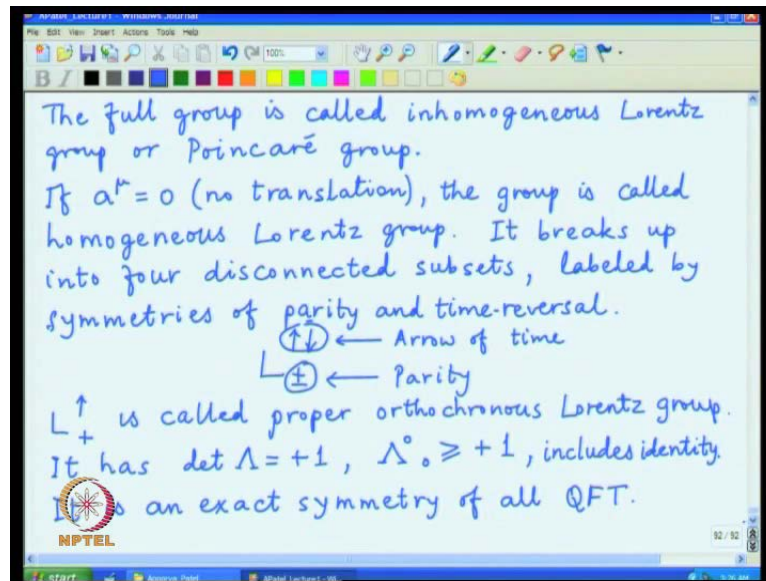 APatel_Lecture1 - Windows Journal
File Edit View Insert Actions Tools Help
100%
B I
The full group is called inhomogeneous Lorentz
group or Poincaré group.
If a^μ = 0 (no translation), the group is called
homogeneous Lorentz group. It breaks up
into four disconnected subsets, labeled by
symmetries of parity and time-reversal.
↑↓ ← Arrow of time
L ± ← Parity
L₊^↑ is called proper orthochronous Lorentz group.
It has det Λ = +1, Λ⁰₀ ≥ +1, includes identity.
It is an exact symmetry of all QFT.
NPTEL
92 / 92
start Apoorva Patel APatel_Lecture1 - Wi... 9:26 AM